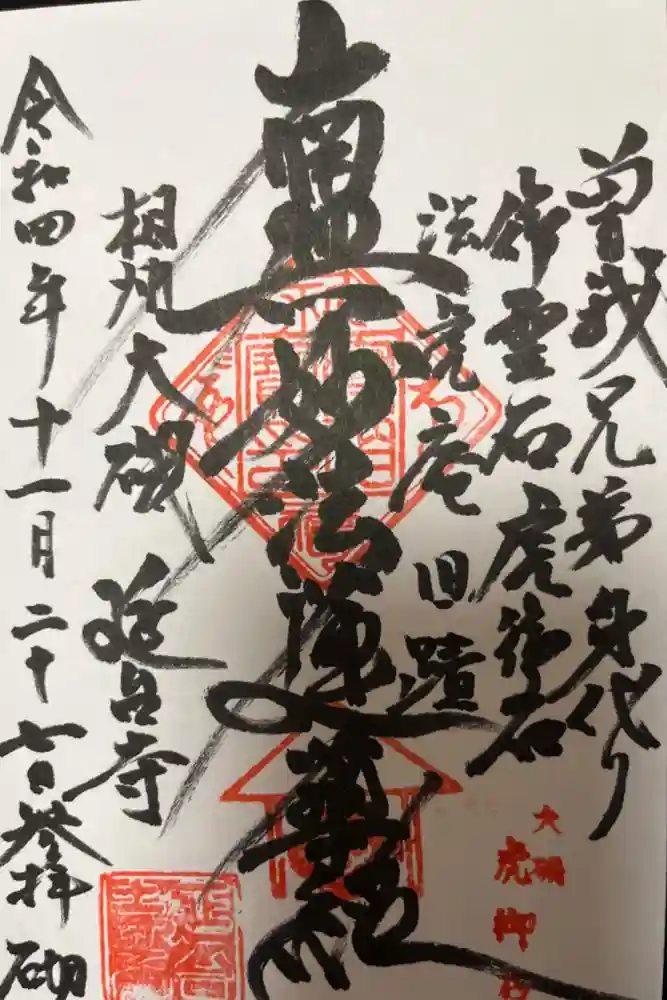 曽我兄弟身代り
御霊石虎御石
法虎庵旧蹟
南無妙法蓮華経
相州大磯
延台寺
令和四年十一月二十七日参拝
大磯
虎御